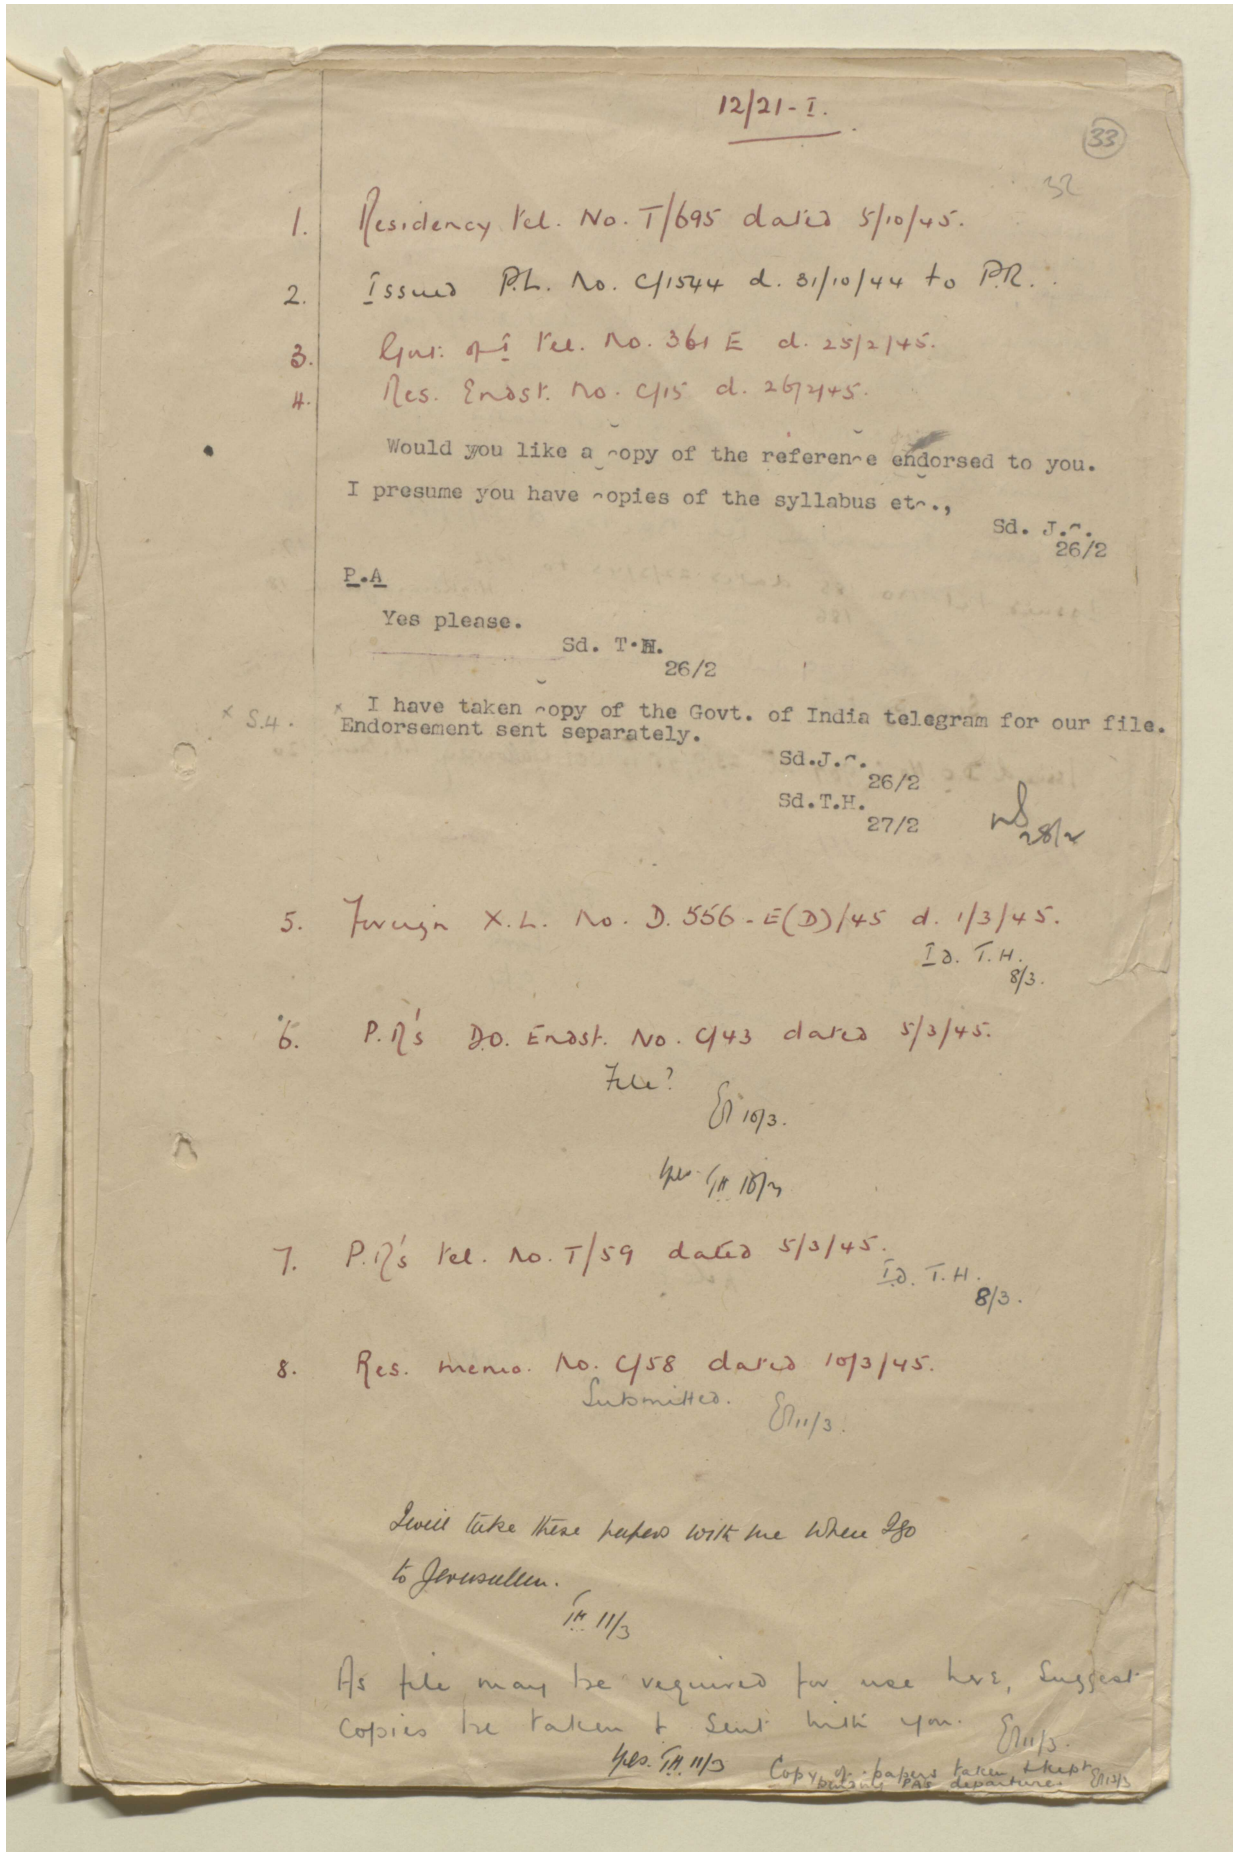 12/21-I.
33
32
1. Residency tel. No. T/695 dated 5/10/45.
2. Issued P.L. No. C/1544 d. 31/10/44 to P.R.
3. Govt: of I tel. No. 361 E d. 25/2/45.
4. Res. Endst. No. C/15 d. 26/2/45.
Would you like a copy of the reference endorsed to you.
I presume you have copies of the syllabus etc.,
Sd. J.C.
26/2
P.A
Yes please.
Sd. T.H.
26/2
x S.4.
x I have taken copy of the Govt. of India telegram for our file.
Endorsement sent separately.
Sd.J.C.
26/2
Sd.T.H.
27/2
28/2
5. Foreign X.L. No. D. 556-E(D)/45 d. 1/3/45.
Id. T.H.
8/3.
6. P.R's D.O. Endst. No. C/43 dated 5/3/45.
File?
10/3.
Yes. TH 10/3
7. P.R's tel. No. T/59 dated 5/3/45.
Id. T.H.
8/3.
8. Res. memo. No. C/58 dated 10/3/45.
Submitted.
11/3.
I will take these papers with me when I go
to Jerusalem.
T.H. 11/3
As file may be required for use here, suggest
copies be taken & sent with you.
11/3.
Yes. T.H. 11/3
Copy of papers taken & kept
PA's departure. 12/3